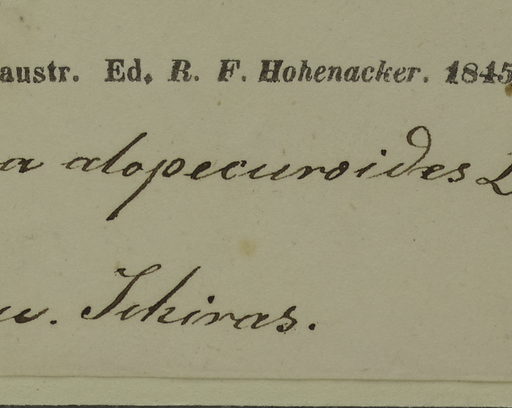 austr. Ed. R. F. Hohenacker. 1845
a alopecuroides L
w. Schiras.